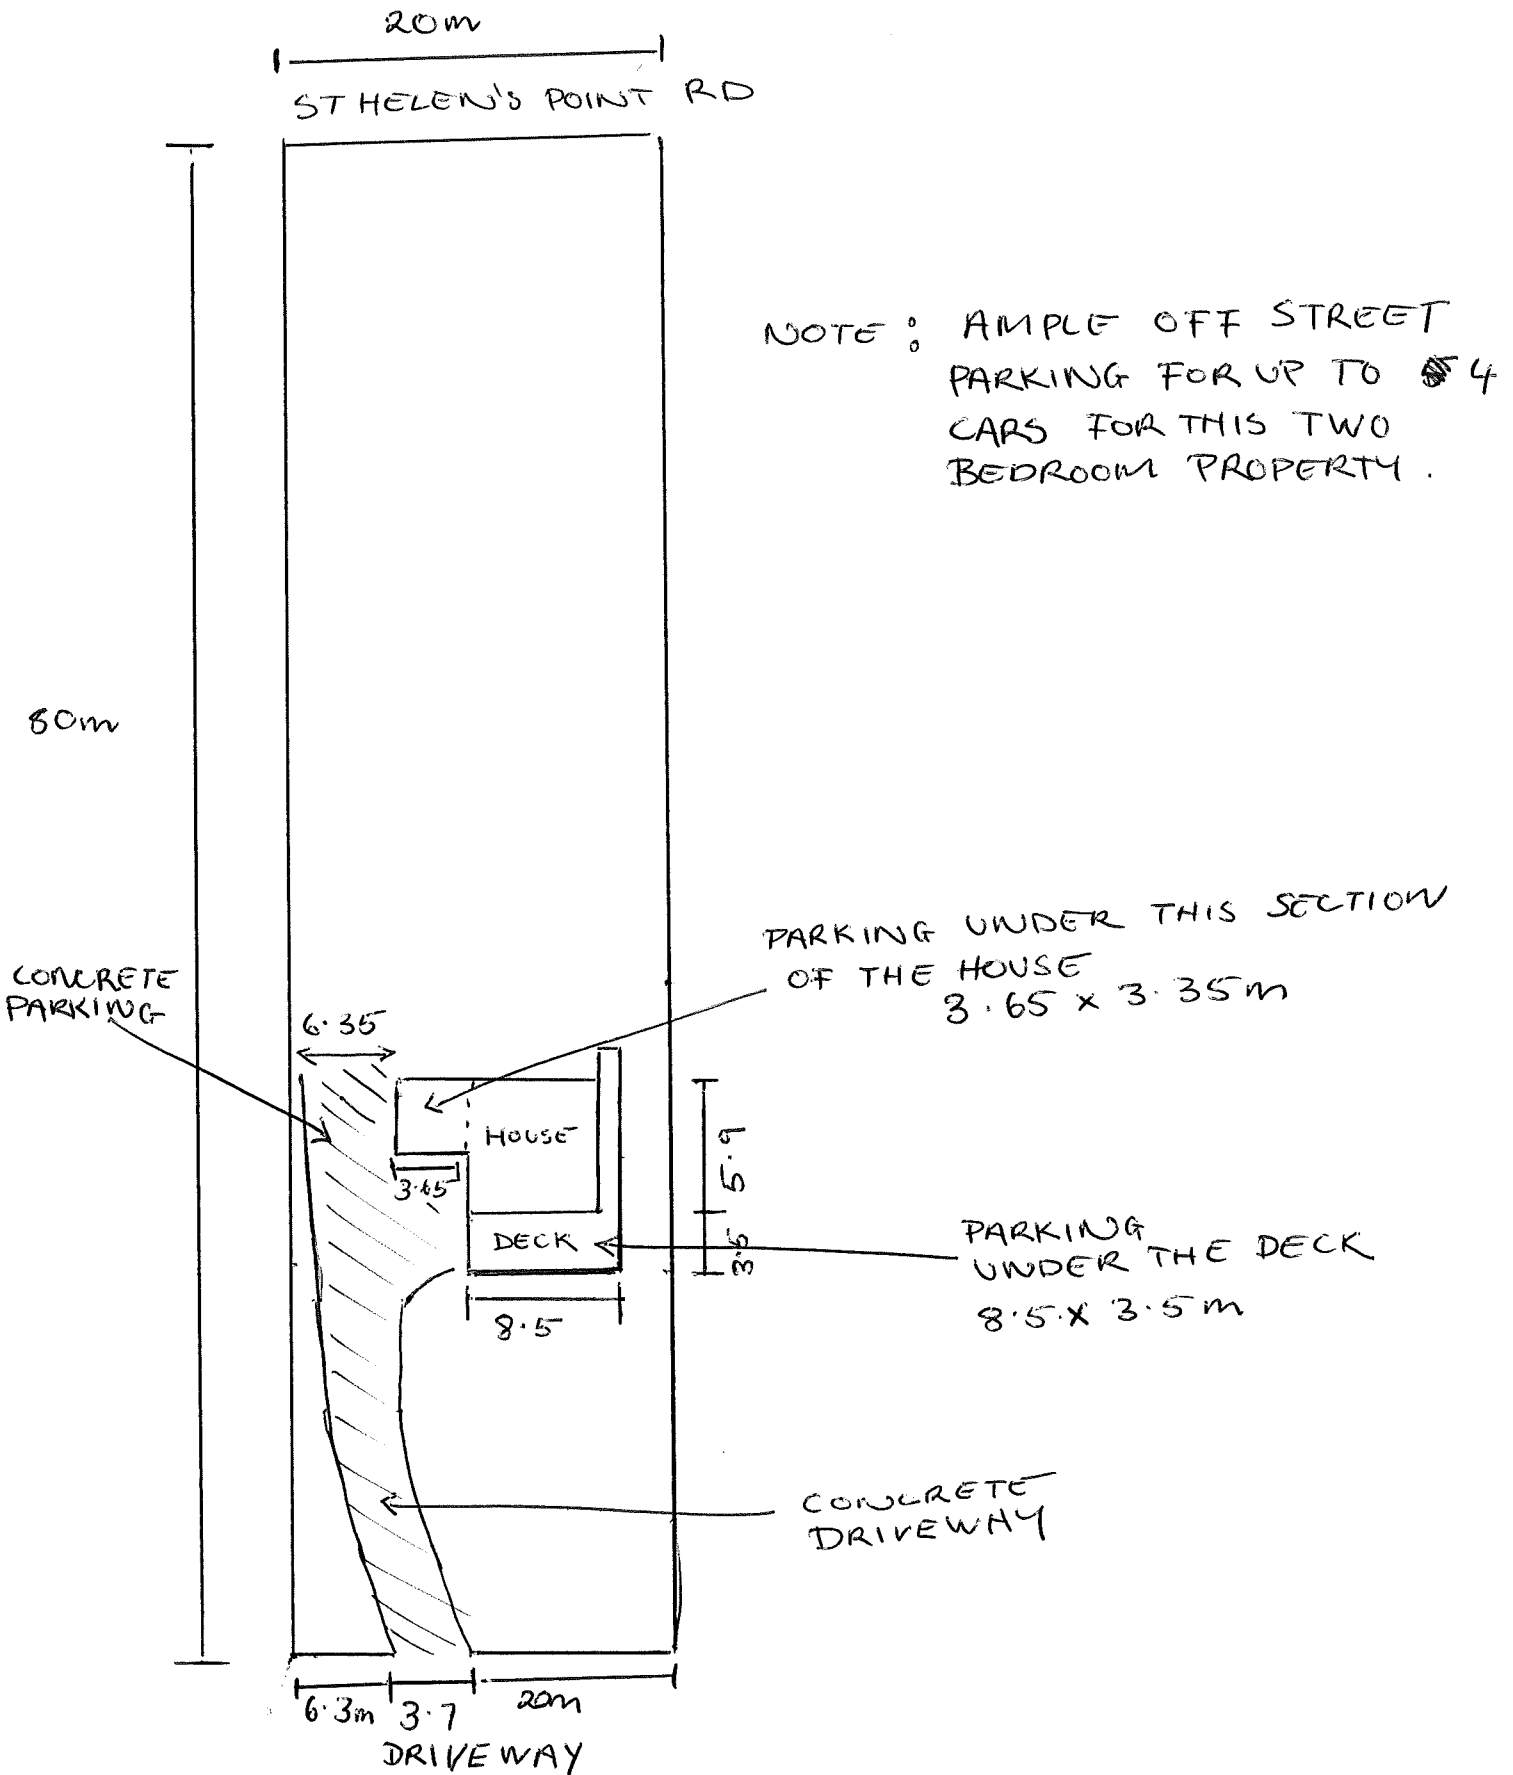 20m
ST HELEN'S POINT RD
NOTE: AMPLE OFF STREET
PARKING FOR UP TO 4
CARS FOR THIS TWO
BEDROOM PROPERTY.
80m
PARKING UNDER THIS SECTION
OF THE HOUSE
3.65 x 3.35m
CONCRETE
PARKING
6.35
HOUSE
5.9
3.65
DECK
3.5
PARKING
UNDER THE DECK
8.5 x 3.5m
8.5
CONCRETE
DRIVEWAY
6.3m
3.7
20m
DRIVEWAY